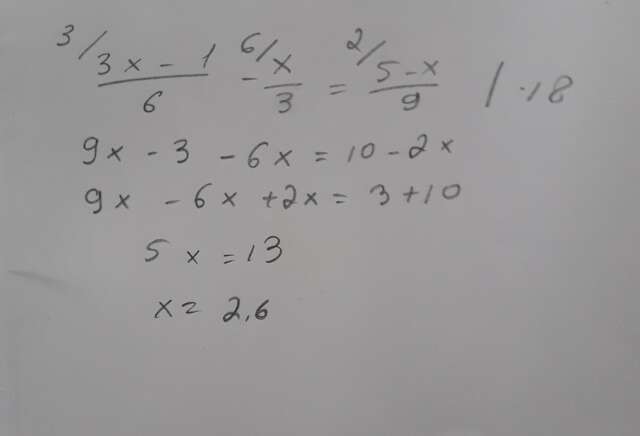 3/ 3x - 1 / 6 - 6/ x / 3 = 2/ 5 - x / 9 | · 18
9x - 3 - 6x = 10 - 2x
9x - 6x + 2x = 3 + 10
5x = 13
x = 2,6